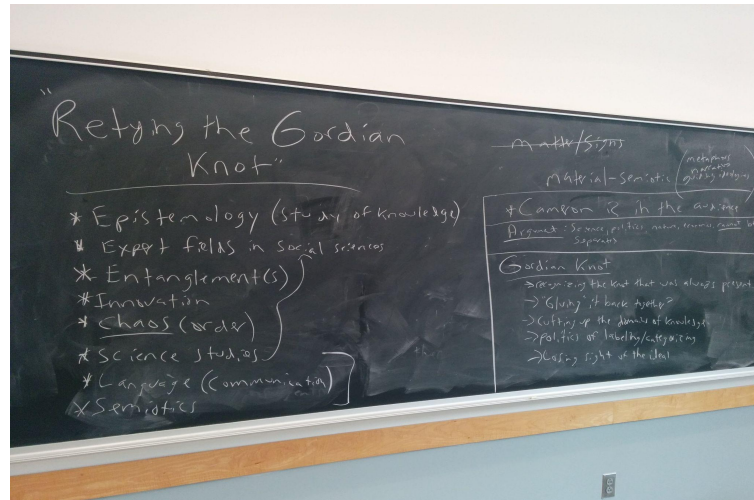 "Retying the Gordian
Knot"
* Epistemology (study of knowledge)
* Expert fields in social sciences
* Entanglement(s)
* Innovation
* Chaos (order)
* Science studies
* Language (communication)
* Semiotics
matter/signs
material-semiotic (metaphors
narrative
*Cameron is in the audience
Argument: Science, politics, nature, cannot be
separated
Gordian Knot
→ recognizing the knot that was always present
→ "Gluing" it back together?
→ Cutting up the domain of knowledge
→ politics of labeling/categorizing
→ Losing sight of the ideal